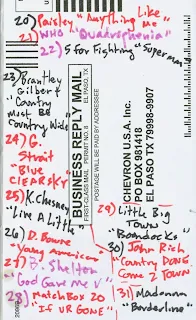 20) Paisley "Anything Like Me
21) WHO "Quadrophenia"
22) 5 for Fighting "Superman"
23) Brantley
Gilbert
"Country
Must BE
Country Wide"
24) G.
Strait
Blue
CLEAR SKY
25) K. Chesney
"Live A Little"
26) D. Bowie
"Young Americans"
27) B. Shelton
"God Gave Me U"
28) Matchbox 20
"IF UR GONE"
BUSINESS REPLY MAIL
FIRST-CLASS MAIL PERMIT NO. 8 EL PASO, TX
POSTAGE WILL BE PAID BY ADDRESSEE
CHEVRON U.S.A. Inc.
PO BOX 981418
EL PASO TX 79998-9907
29) Little Big
Town
"Boondocks"
30) John Rich
"Country DONE
Come 2 Town"
31) Madonna
"Borderline"